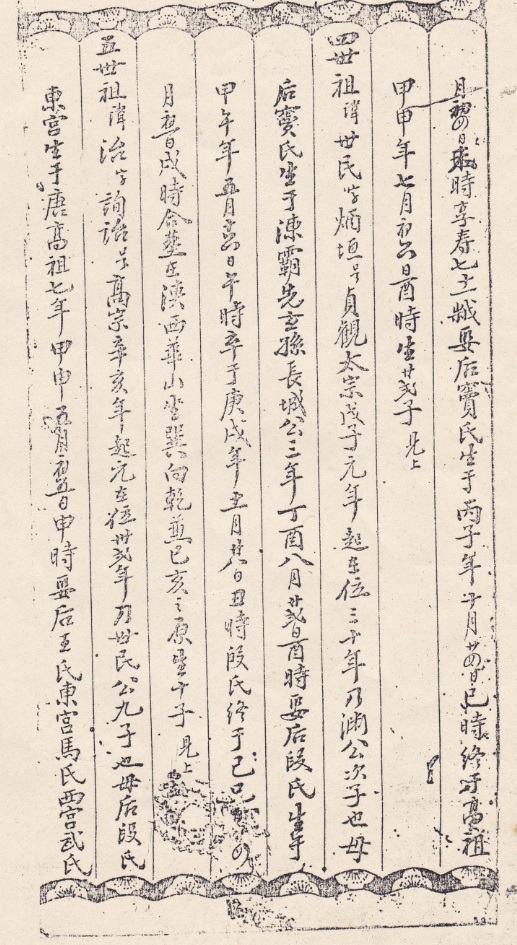 月初四日 時享寿七十一嵗娶后竇氏生于丙子年十月廿四日巳時終于高祖
甲申年七月初六日酉時生廿弍子 見上
四世祖諱世民字炳垣号貞觀太宗戊子元年起在位三十年乃渊公次子也母
后竇氏生于陳霸先玄孫長城公三年丁酉八月廿弍日酉時娶后段氏生于
甲午年五月 日午時卒于庚戌年五月廿八日丑時段氏終于己
月初 日戌時合塟在陕西華山坐巽向乾兼巳亥之原生十子 見上
五世祖諱治字詢詒号高宗辛亥年起元在位卅弍年乃世民公九子也母后段氏
東宫生于唐高祖七年甲申五月初五日申時娶后王氏東宫馬氏西宫武氏